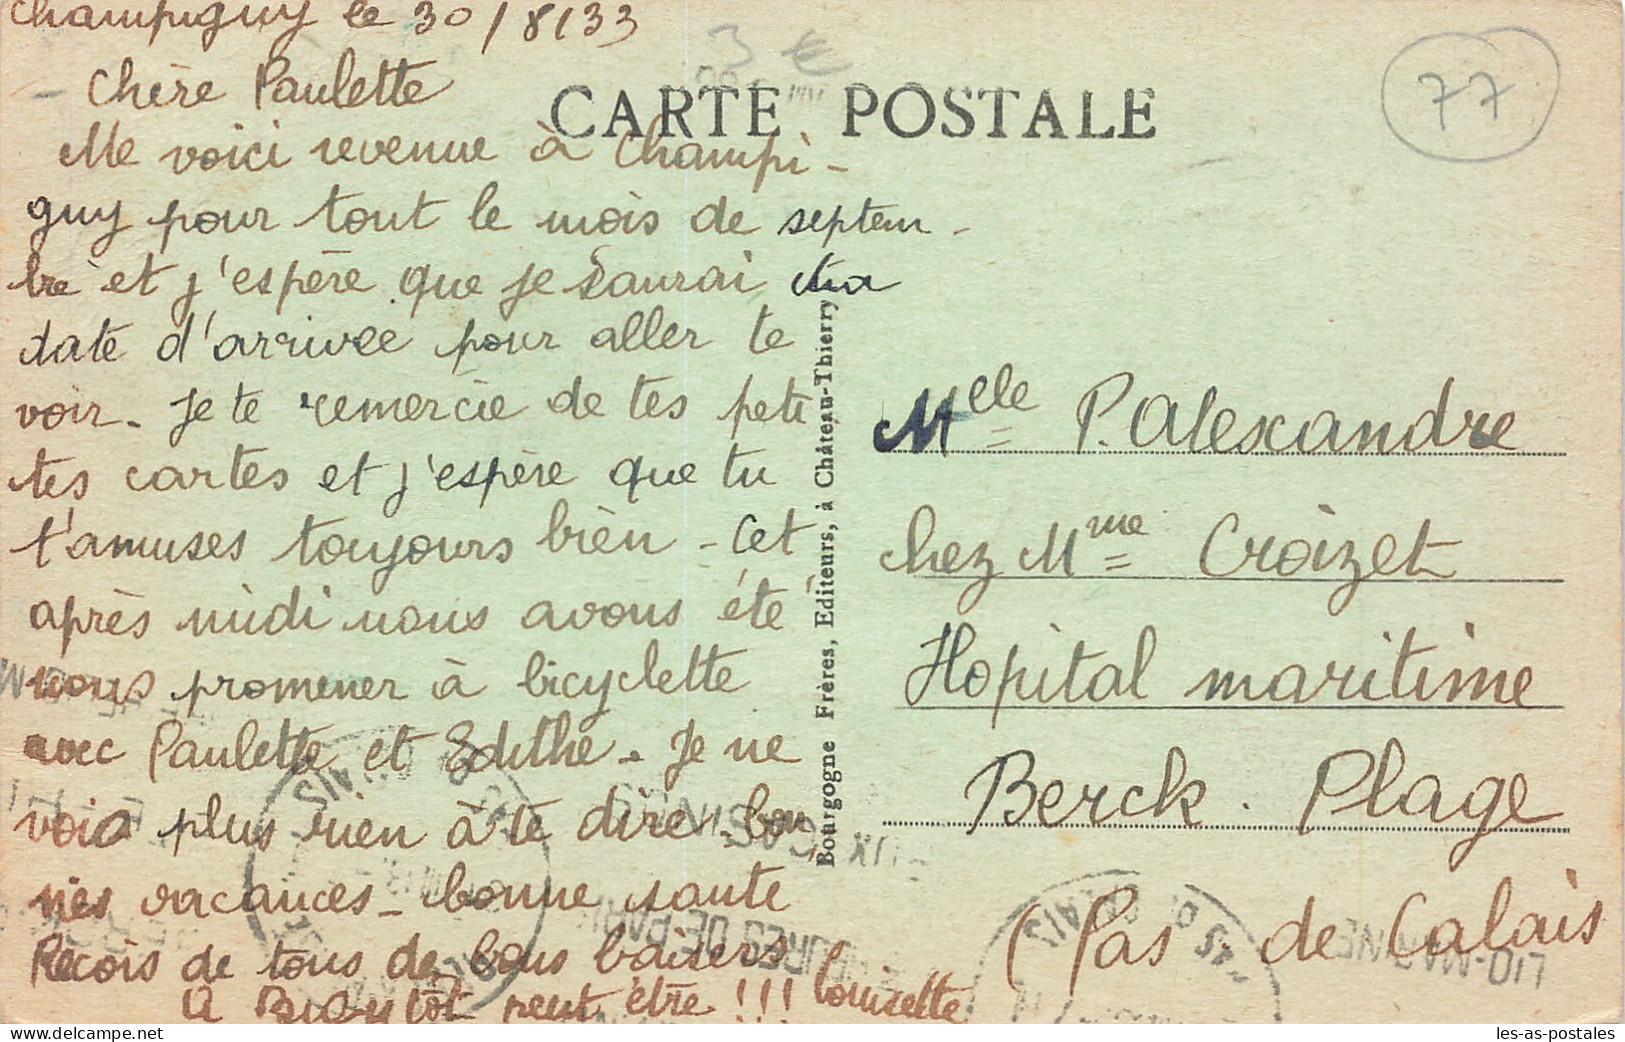 Champiguy le 30/8/33
Chère Paulette
Me voici revenue à Champi-
guy pour tout le mois de septem-
bre et j'espère que je saurai ta
date d'arrivée pour aller te
voir. Je te remercie de tes peti
tes cartes et j'espère que tu
t'amuses toujours bien - Cet
après midi nous avons été
nous promener à bicyclette
avec Paulette et Edithe. Je ne
vois plus rien à te dire. bon,
nes vacances - bonne sante
Recois de tous de bons baisers
A Bientôt peut être !!! Louisette
3 €
77
CARTE POSTALE
Bourgogne Frères, Editeurs, à Château-Thierry
Melle P. Alexandre
chez Mme Croizet
Hopital maritime
Berck. Plage
(Pas de Calais
delcampe.net
les-as-postales